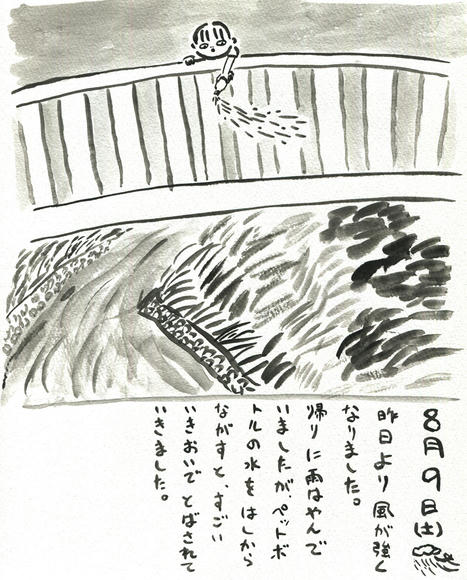 8月9日(土)
昨日より風が強く
なりました。
帰りに雨はやんで
いましたが、ペットボ
トルの水をはしから
ながすと、すごい
いきおいでとばされて
いきました。